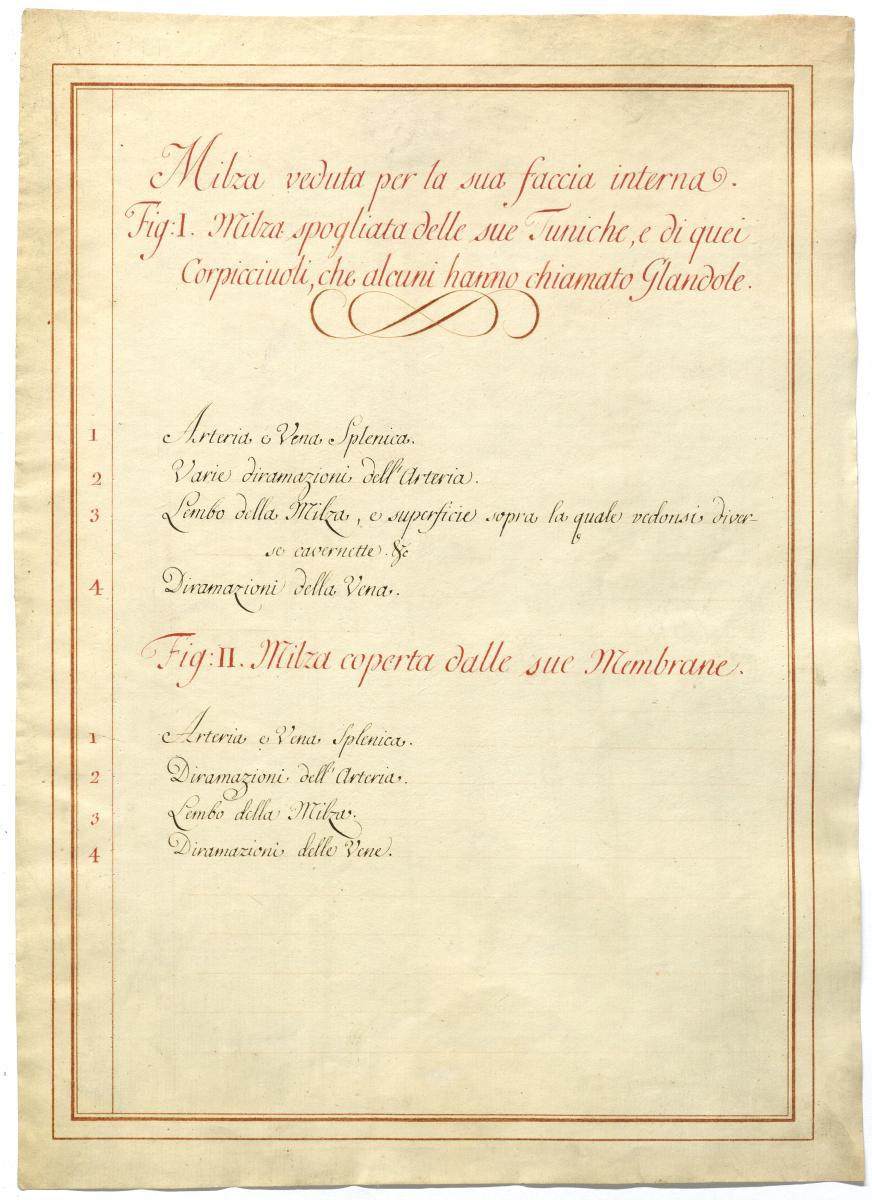 Milza veduta per la sua faccia interna.
Fig: I. Milza spogliata delle sue Tuniche, e di quei
Corpicciuoli, che alcuni hanno chiamato Glandole.
1 Arteria e Vena Splenica.
2 Varie diramazioni dell'Arteria.
3 Lembo della Milza, e superficie sopra la quale vedonsi diver-
se cavernette. &c
4 Diramazioni della Vena.
Fig: II. Milza coperta dalle sue Membrane.
1 Arteria e Vena Splenica.
2 Diramazioni dell'Arteria.
3 Lembo della Milza.
4 Diramazioni delle Vene.